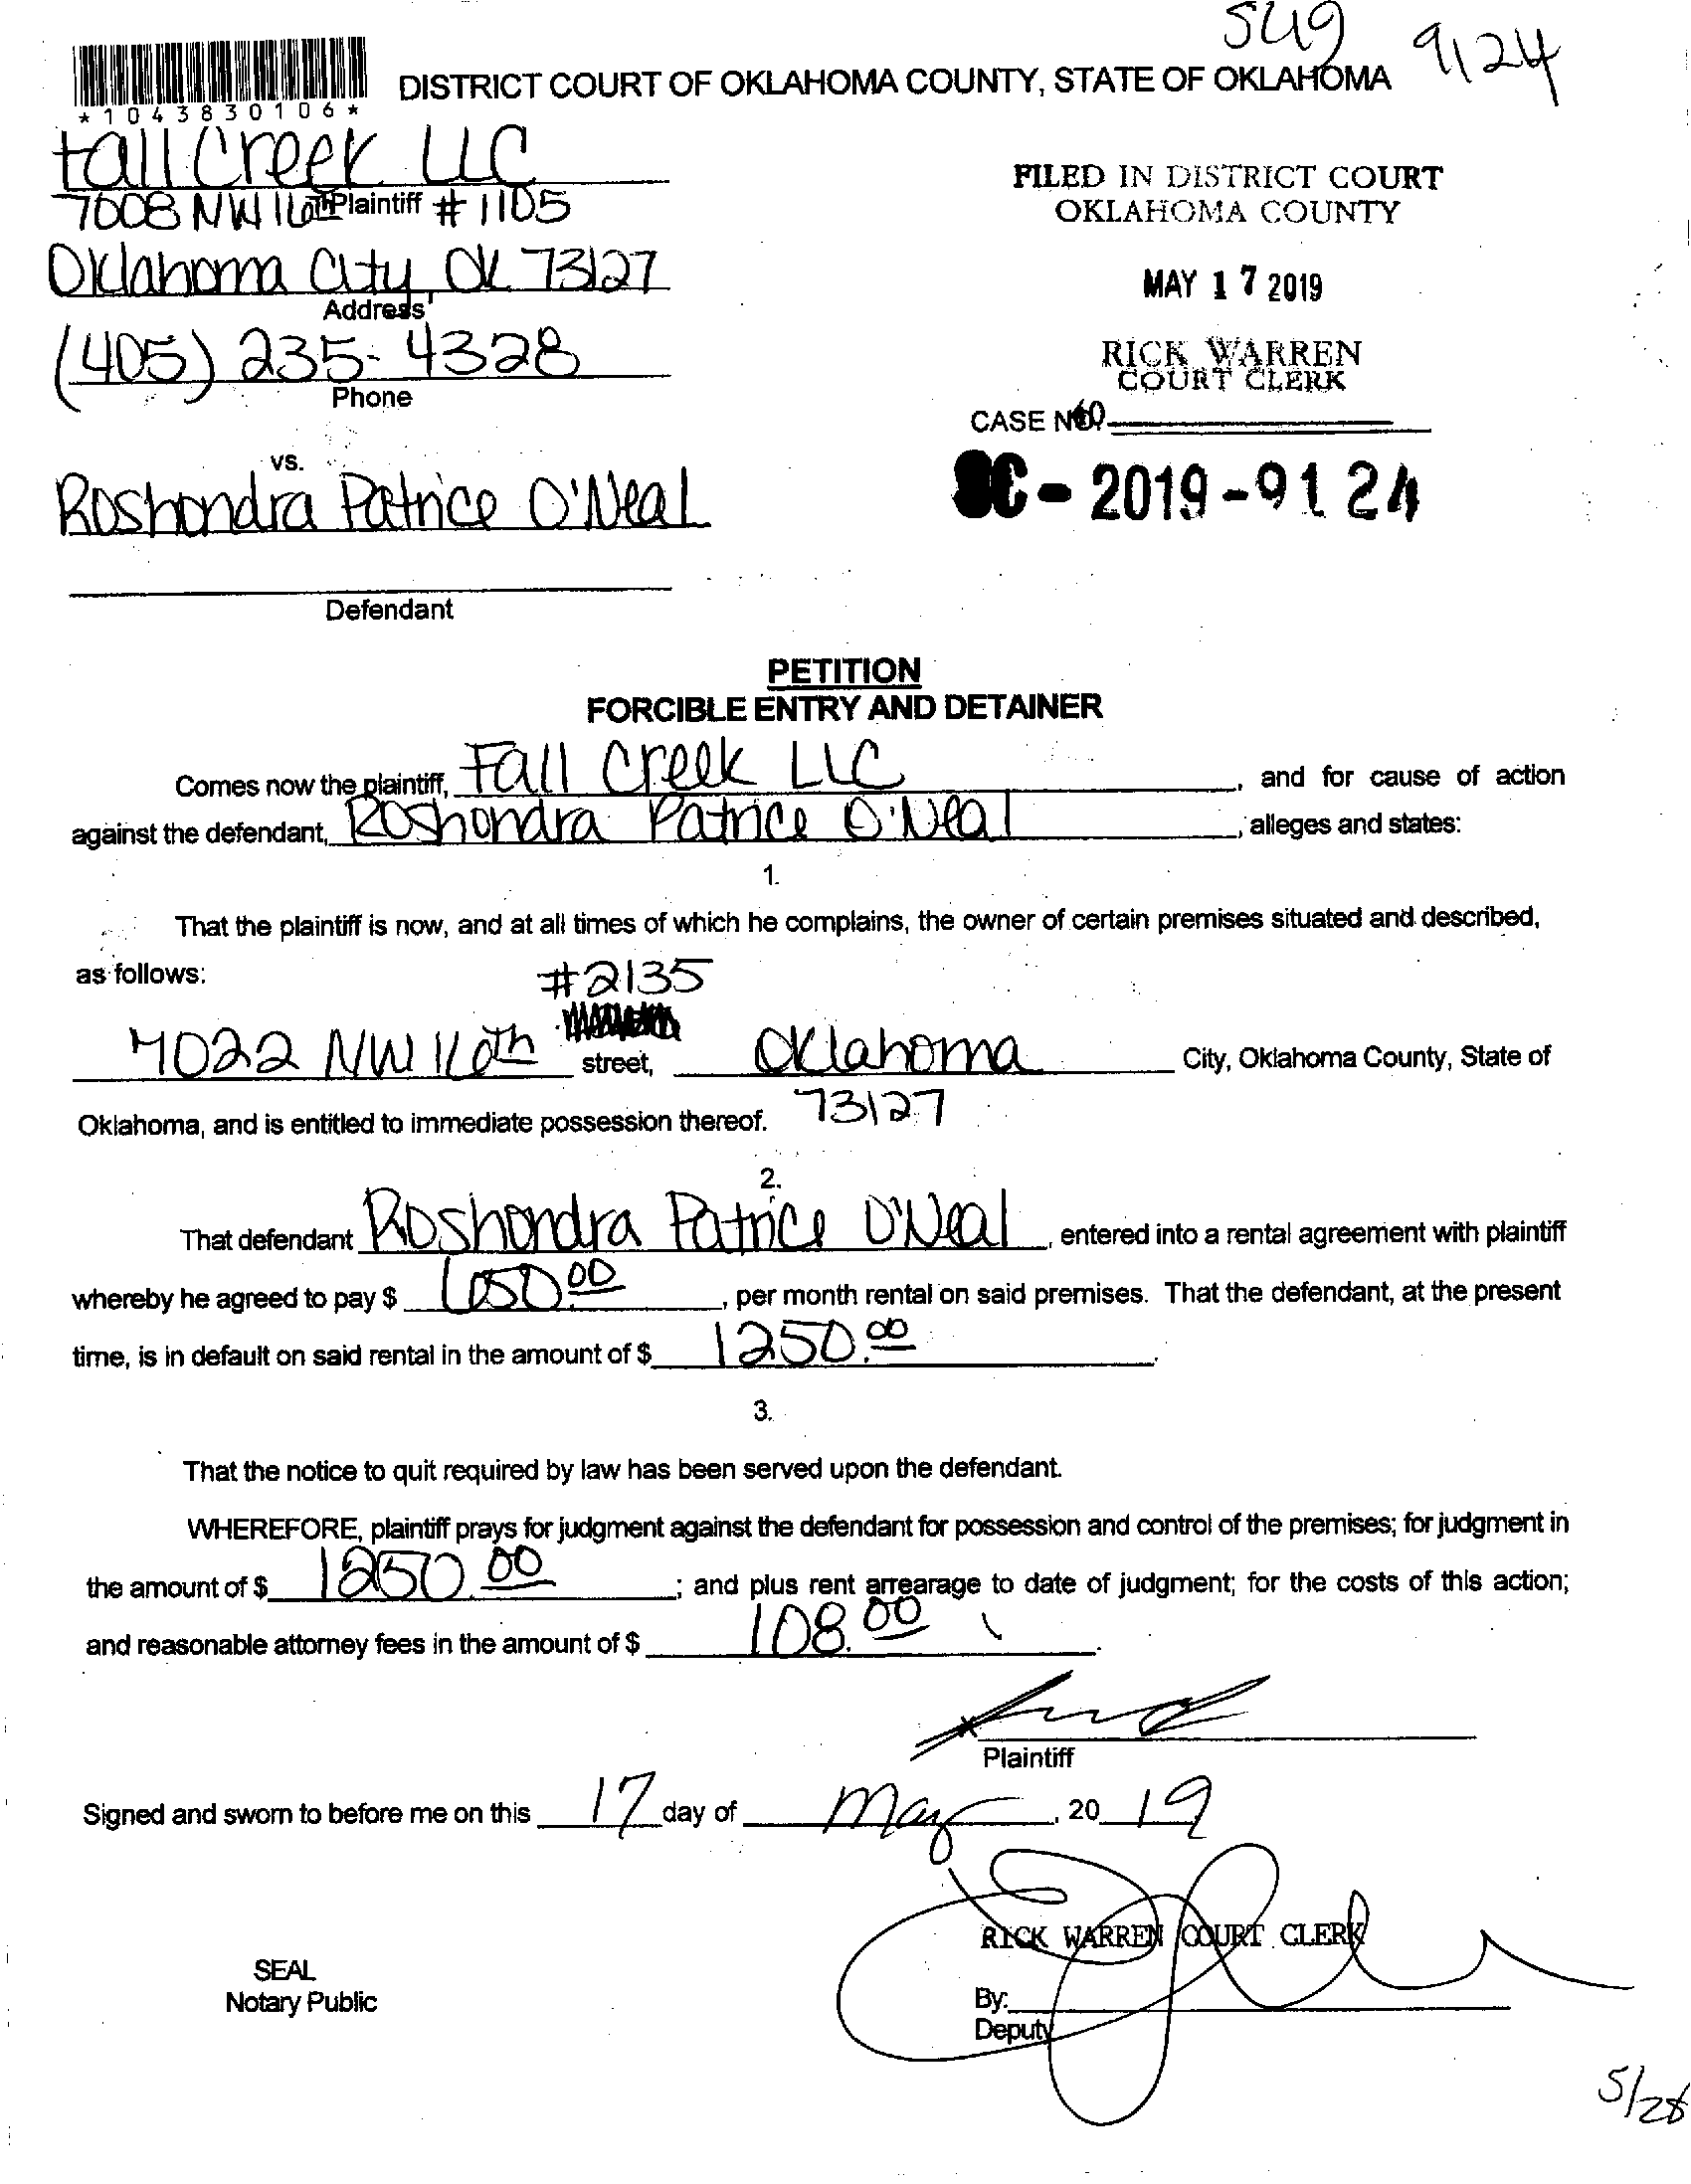 SU9 9124
*1043830106*
DISTRICT COURT OF OKLAHOMA COUNTY, STATE OF OKLAHOMA
Fall Creek LLC
7008 NW 16th Plaintiff #1105
Oklahoma City, OK 73127
Address
(405) 235-4328
Phone
FILED IN DISTRICT COURT
OKLAHOMA COUNTY
MAY 17 2019
RICK WARREN
COURT CLERK
CASE NO.
SC-2019-9124
vs.
Roshondra Patrice O'Neal
Defendant
PETITION
FORCIBLE ENTRY AND DETAINER
Comes now the plaintiff, Fall Creek LLC, and for cause of action
against the defendant, Roshondra Patrice O'Neal, alleges and states:
1.
That the plaintiff is now, and at all times of which he complains, the owner of certain premises situated and described,
as follows:
#2135
7022 NW 16th street, Oklahoma City, Oklahoma County, State of
Oklahoma, and is entitled to immediate possession thereof. 73127
2.
That defendant Roshondra Patrice O'Neal, entered into a rental agreement with plaintiff
whereby he agreed to pay $ 650.00, per month rental on said premises. That the defendant, at the present
time, is in default on said rental in the amount of $ 1250.00.
3.
That the notice to quit required by law has been served upon the defendant.
WHEREFORE, plaintiff prays for judgment against the defendant for possession and control of the premises; for judgment in
the amount of $ 1250.00; and plus rent arrearage to date of judgment; for the costs of this action;
and reasonable attorney fees in the amount of $ 108.00.
Plaintiff
Signed and sworn to before me on this 17 day of May, 2019
RICK WARREN COURT CLERK
SEAL
Notary Public
By:
Deputy
5/28